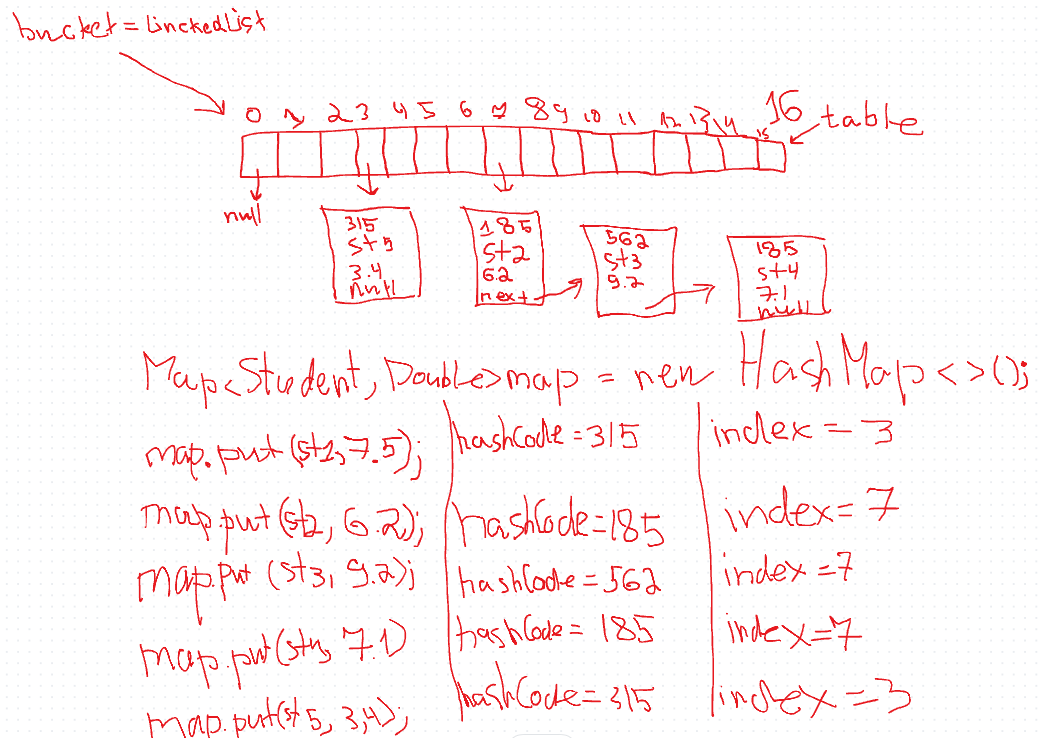 bucket = LinckedList
0 1 2 3 4 5 6 7 8 9 10 11 12 13 14 15 16 table
null
315
st5
3.4
null
185
st2
6.2
next
562
st3
9.2
185
st4
7.1
null
Map<Student, Double> map = new HashMap<>();
map.put(st1, 7.5); hashCode = 315 index = 3
map.put(st2, 6.2); hashCode = 185 index = 7
map.put(st3, 9.2); hashCode = 562 index = 7
map.put(st4, 7.1) hashCode = 185 index = 7
map.put(st5, 3,4); hashCode = 315 index = 3